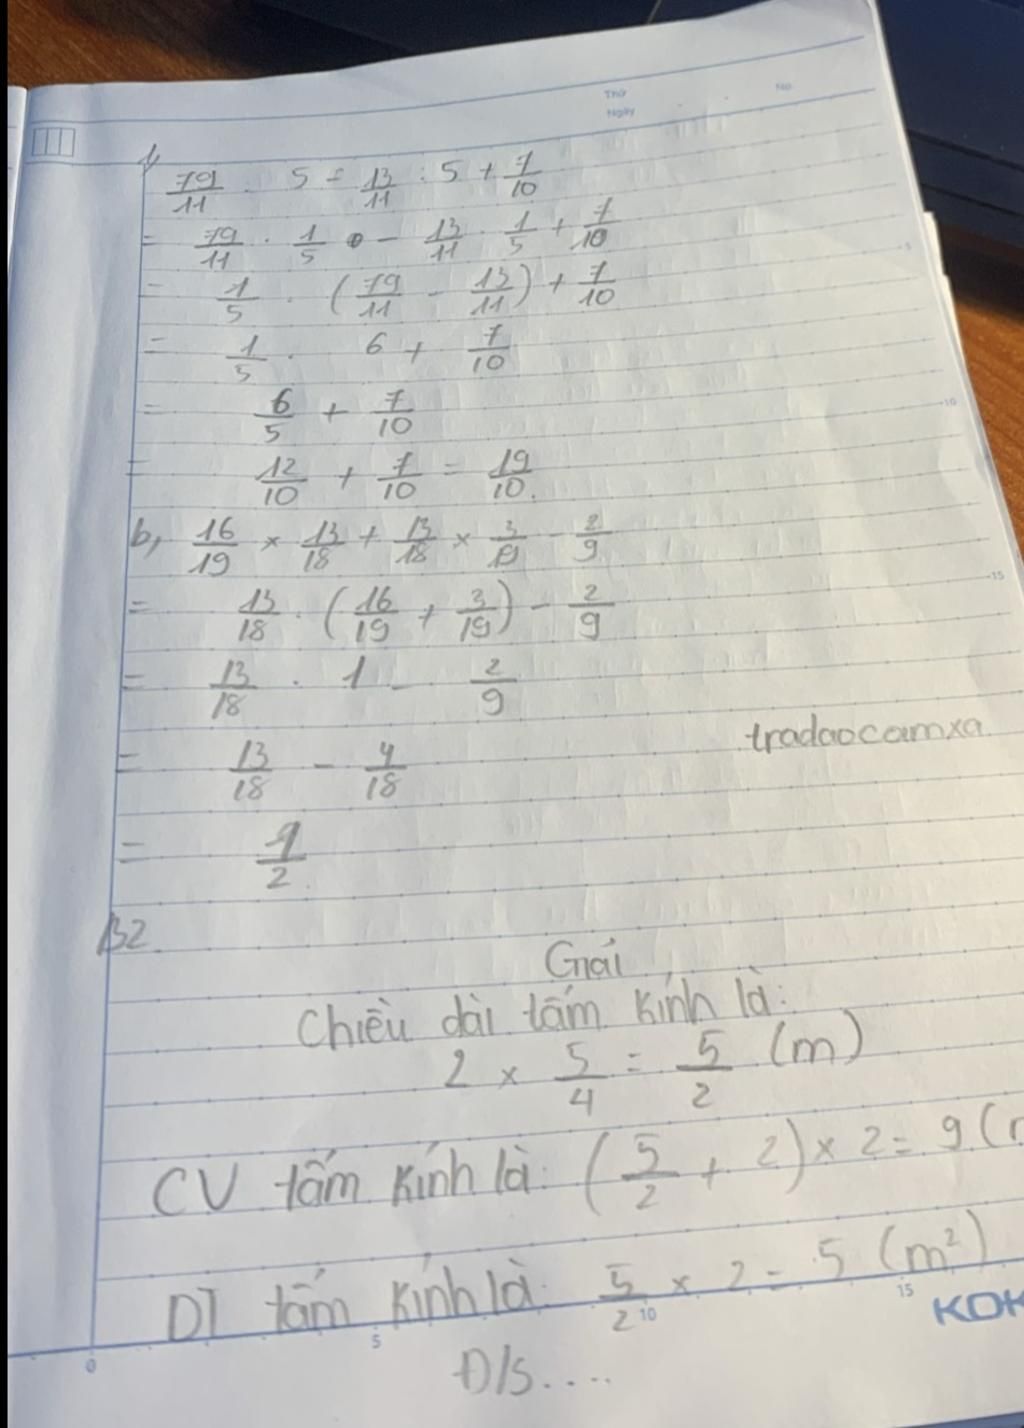 Thứ
Ngày
No.
1,
79/11 : 5 - 13/11 : 5 + 7/10
= 79/11 . 1/5 - 13/11 . 1/5 + 7/10
= 1/5 . (79/11 - 13/11) + 7/10
= 1/5 . 6 + 7/10
= 6/5 + 7/10
= 12/10 + 7/10 = 19/10.
b, 16/19 × 13/18 + 13/18 × 3/19 - 2/9
= 13/18 . (16/19 + 3/19) - 2/9
= 13/18 . 1 - 2/9
tradaocamxa.
= 13/18 - 4/18
= 1/2.
B2
Giải
Chiều dài tấm kính là:
2 × 5/4 = 5/2 (m)
CV tấm kính là: (5/2 + 2) × 2 = 9 (
DT tấm kính là: 5/2 × 2 = 5 (m²)
0 5 10 15 KOK
Đ/S....